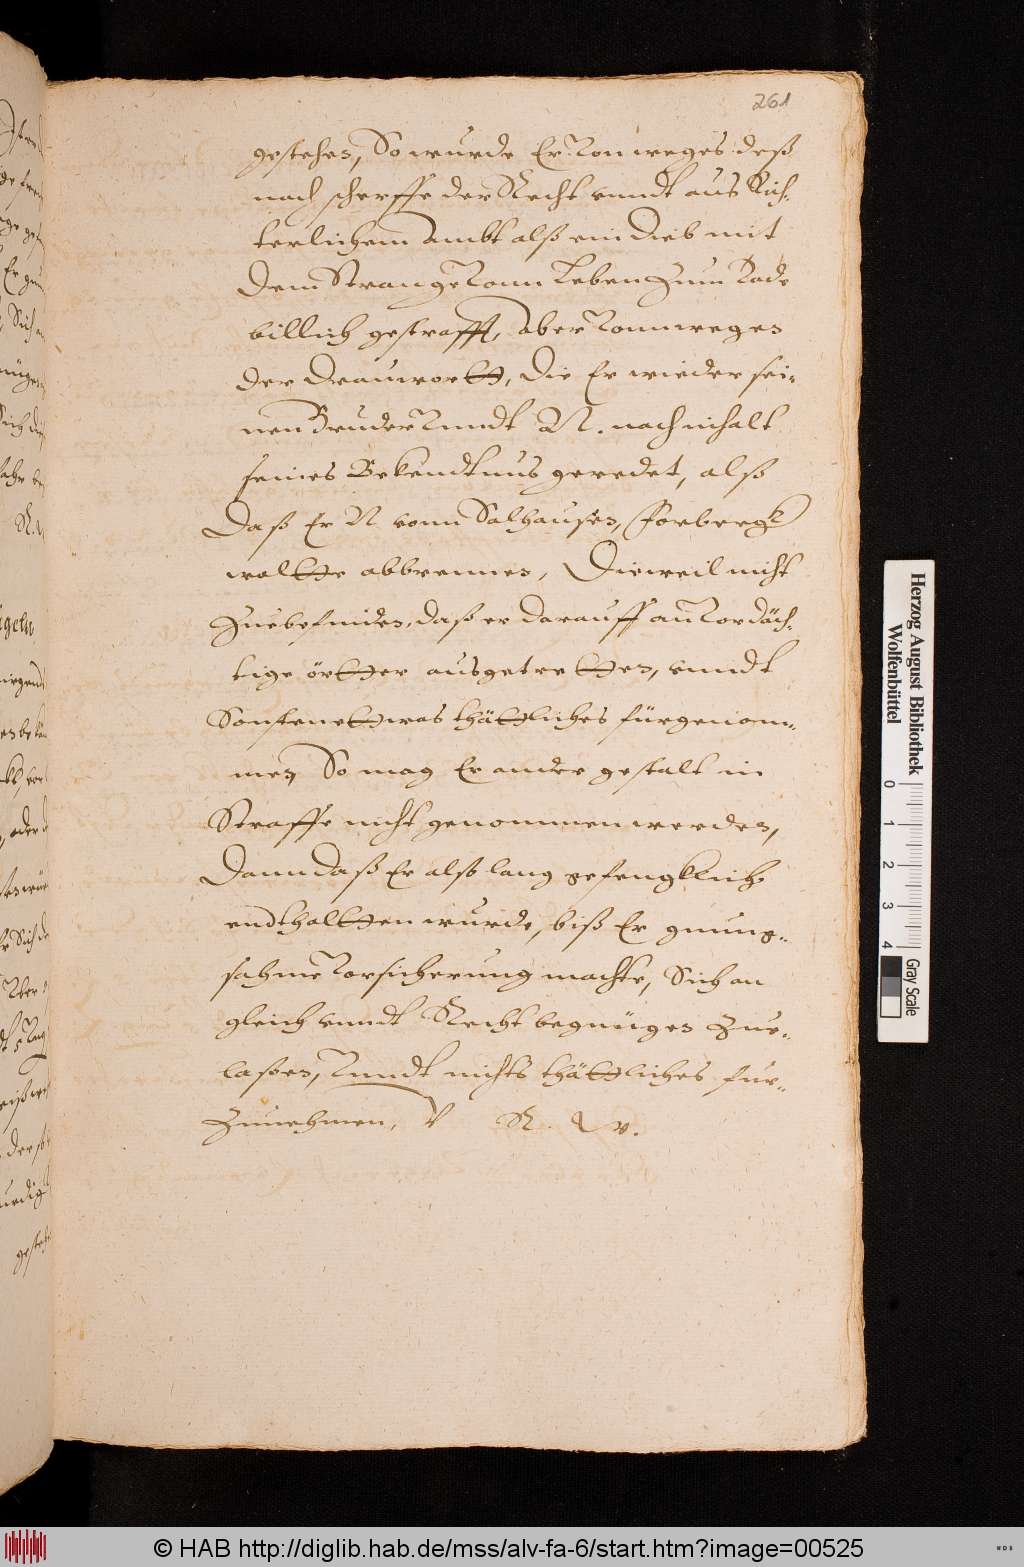 261
gestehen, So wurde Er von weges deß
nach scherffe der Recht vnndt aus Rich-
terlichem ambt alß ein dieb mit
dem Strange vonn Leben zum Tode
billich gestrafft, aber vonn weges
der drauwortt, die Er wieder sei-
nen Bruder vnndt N. nach inhalt
seines Bekendtnus geredet, alß
daß Er N vonn Salhausen, forbergk
woltte abbrennen, Dieweil nicht
zuebefinden, daß er darauff an vordäch-
tige örtter ausgetretten, vnndt
Sonsten ettwas thättliches fürgenom-
men, So mag Er ander gestalt in
Straffe nicht genommen werden,
Dann daß Er alß lang gefengklich
endthaltten wurde, biß Er gnung-
sahme vorsicherung machte, Sich an
gleich vnndt Recht begnügen zue-
laßen, vnndt nichts thättliches fur-
zunehmen, V R. W.
Herzog August Bibliothek
Wolfenbüttel
0 1 2 3 4
Gray Scale
© HAB http://diglib.hab.de/mss/alv-fa-6/start.htm?image=00525
WDB